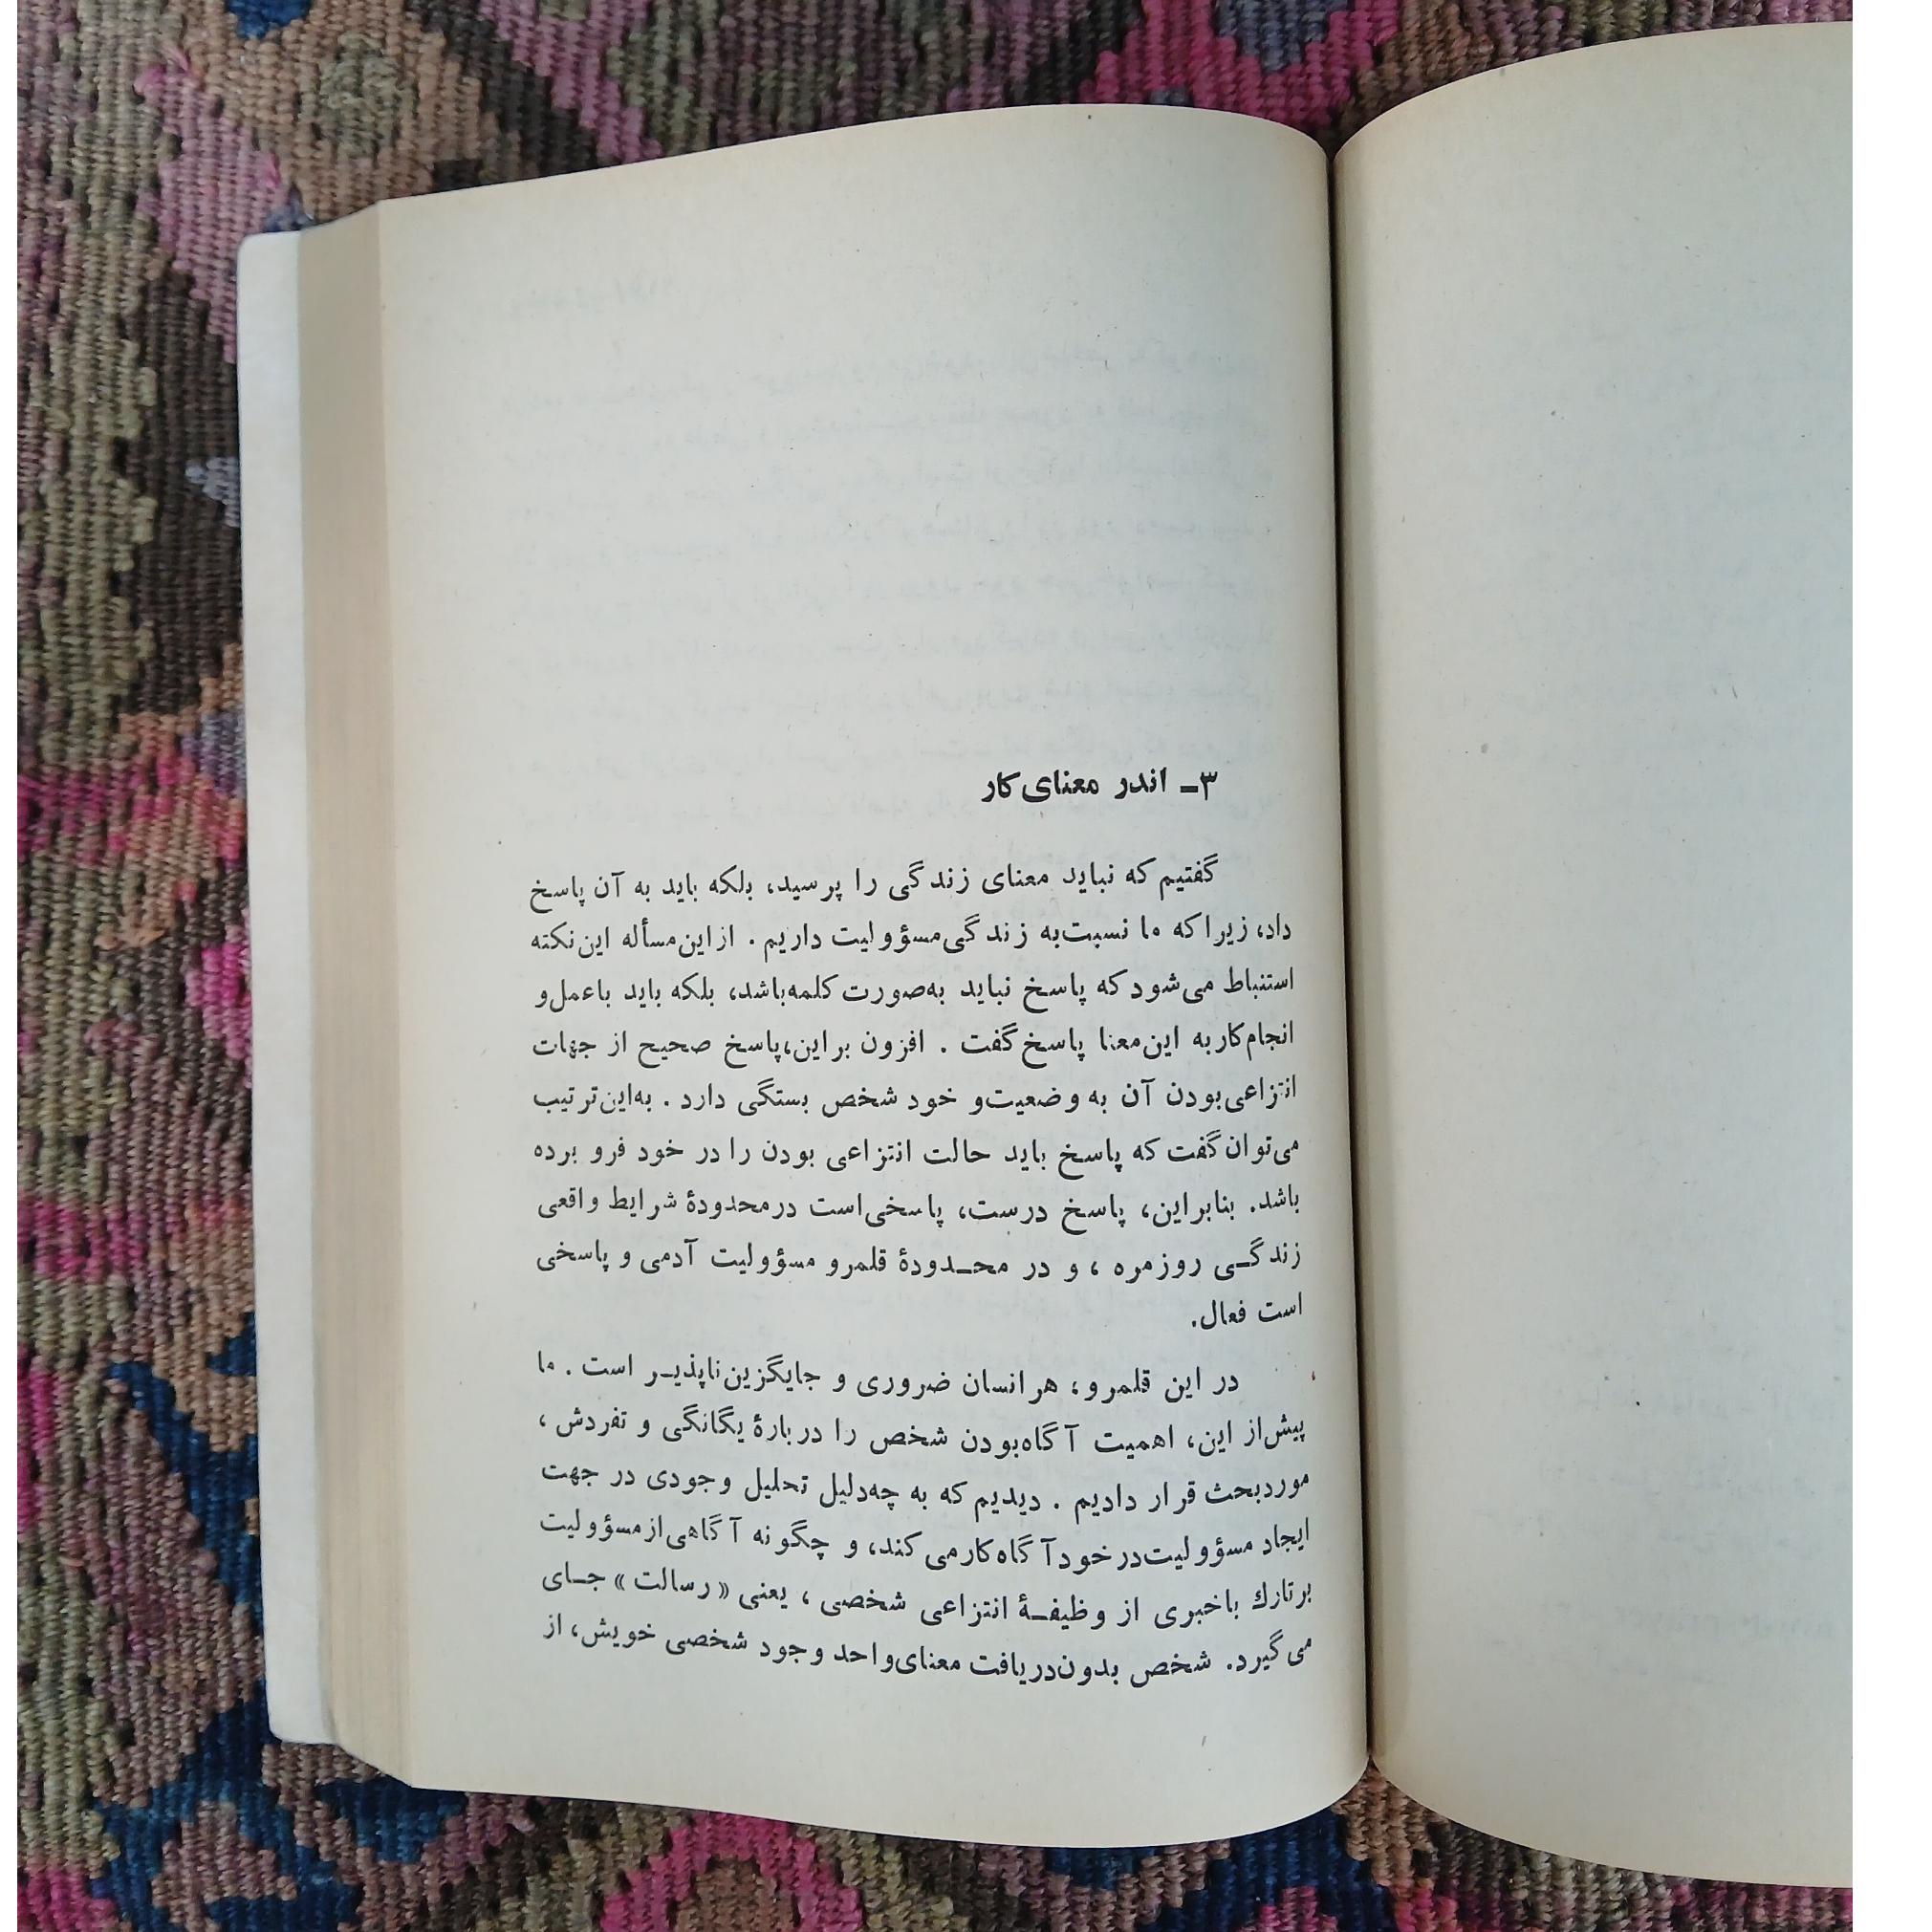 ۳ـ اندر معنای کار
گفتیم که نباید معنای زندگی را پرسید، بلکه باید به آن پاسخ
داد، زیرا که ما نسبت‌به زندگی‌مسؤولیت داریم . ازاین‌مسأله این‌نکته
استنباط می‌شود که پاسخ نباید به‌صورت کلمه‌باشد، بلکه باید باعمل‌و
انجام‌کار به این‌معنا پاسخ گفت . افزون براین،پاسخ صحیح از جهات
انتزاعی‌بودن آن به وضعیت‌و خود شخص بستگی دارد . به‌این‌ترتیب
می‌توان گفت که پاسخ باید حالت انتزاعی بودن را در خود فرو برده
باشد. بنابراین، پاسخ درست، پاسخی‌است درمحدودهٔ شرایط واقعی
زندگـی روزمره ، و در محـدودهٔ قلمرو مسؤولیت آدمی و پاسخی
است فعال.
در این قلمرو، هرانسان ضروری و جایگزین‌ناپذیـر است . ما
پیش‌از این، اهمیت آگاه‌بودن شخص را دربارهٔ یگانگی و تفردش ،
موردبحث قرار دادیم . دیدیم که به چه‌دلیل تحلیل وجودی در جهت
ایجاد مسؤولیت‌درخودآگاه‌کارمی‌کند، و چگونه آگاهی‌ازمسؤولیت
برتارك باخبری از وظیفـهٔ انتزاعی شخصی ، یعنی «رسالت» جـای
می‌گیرد. شخص بدون‌دریافت معنای‌واحد وجود شخصی خویش، از